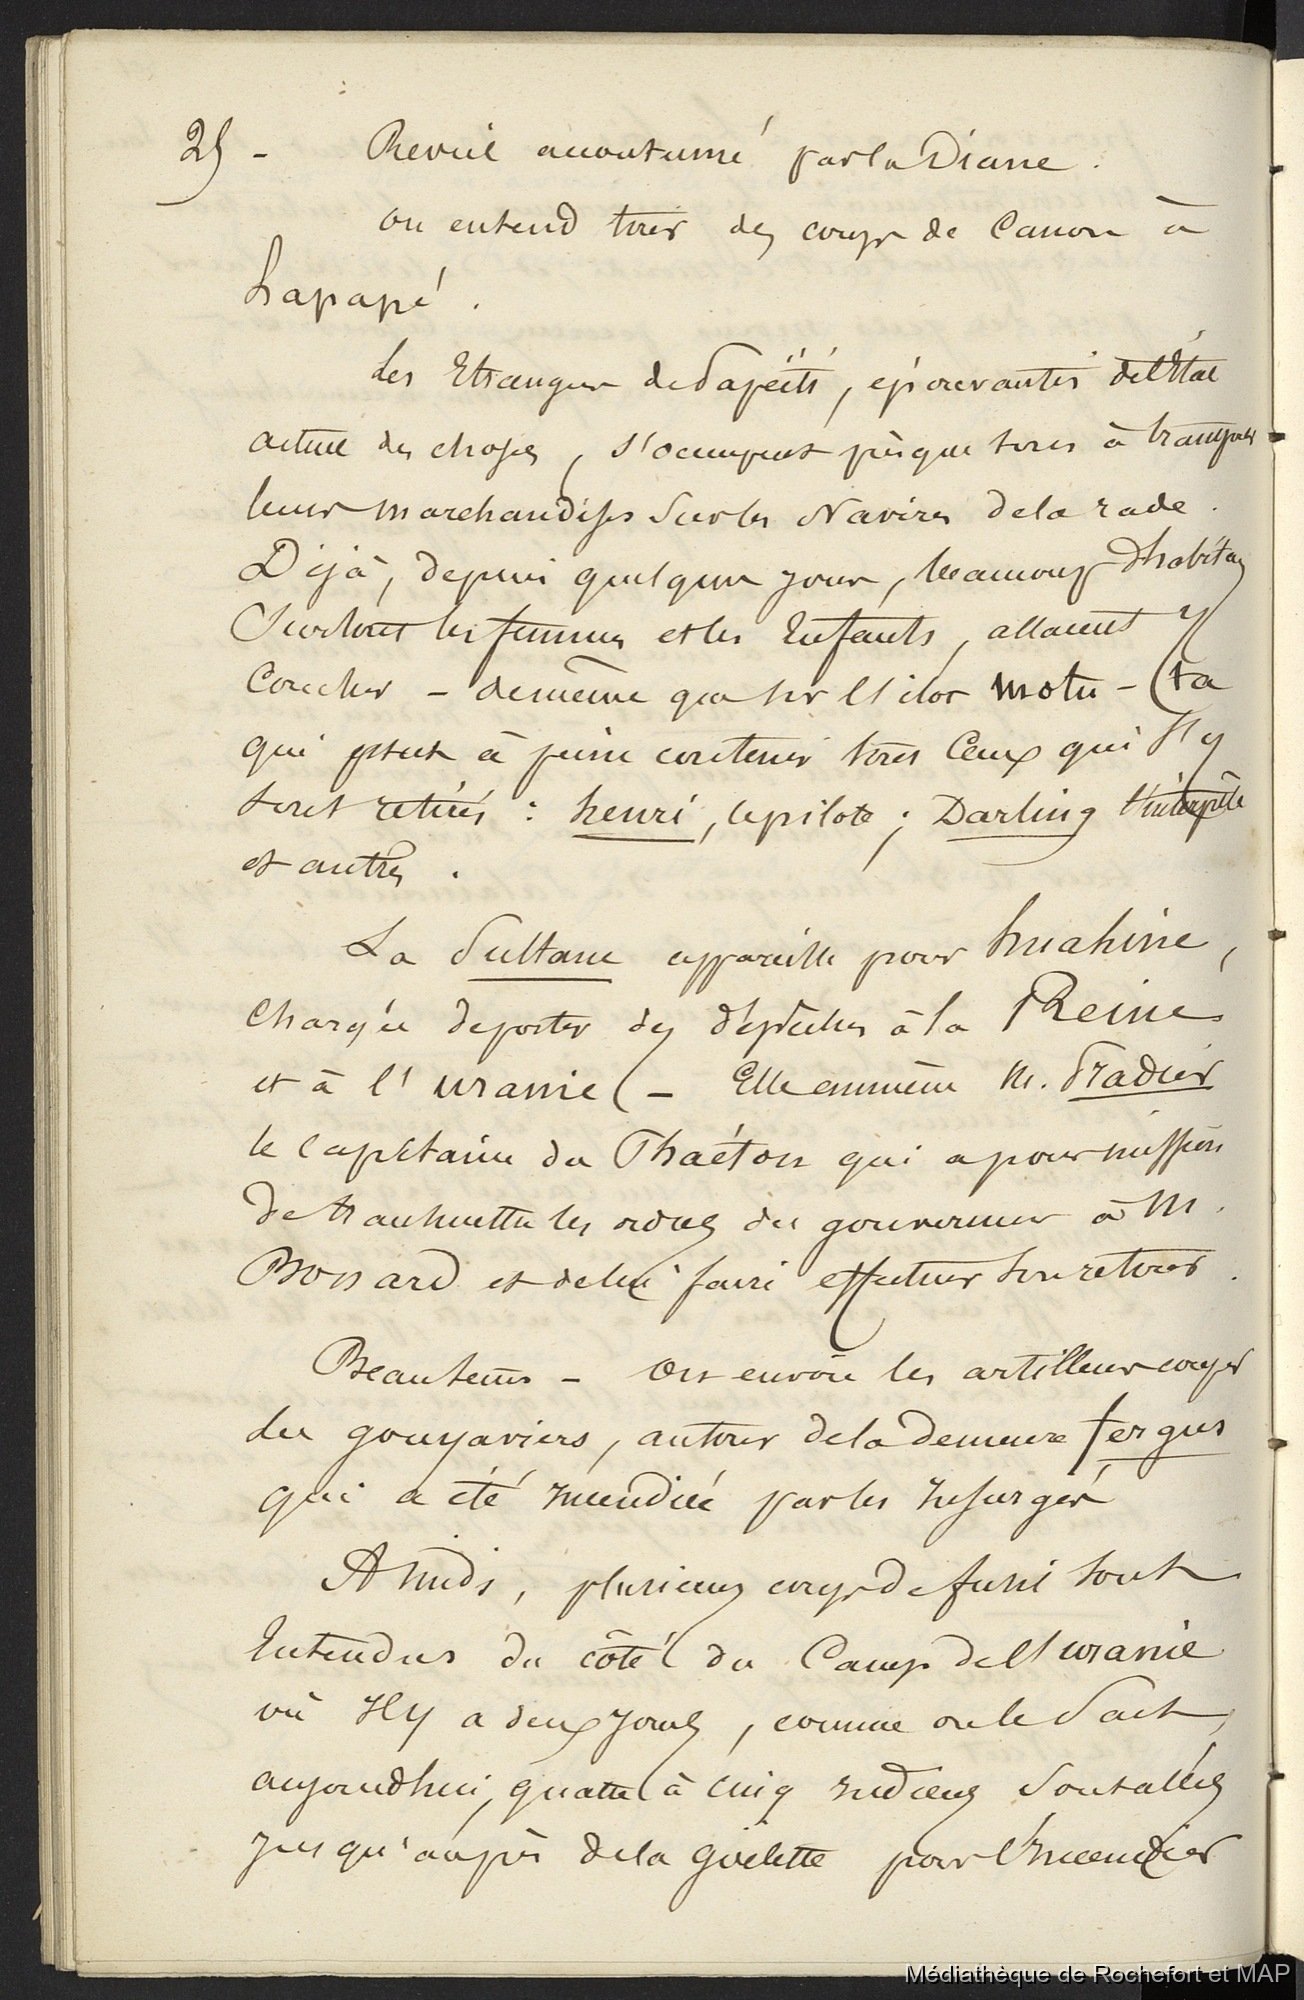 25 - Reveil accoutumé par la Diane.
on entend tirer des coups de Canon à
hapapé.
Les Etrangers de Papéiti, épouvantés del'État
actuel des choses, s'occupent présque tous à
leurs marchandises sur les Navires dela rade.
Déjà, depuis quelques jours, beaucoup d'habitans
Surtout les femmes et les Enfants, allaient y
Coucher - demême que sur l'ilot motu - (ta
qui peut à peine contenir tous Ceux qui s'y
sont retirés : henri, lepilote ; Darling l'interpète
et autres.
La Sultane appareille pour huahine,
Chargée deporter des dépêches à la Reine
et à l'uranie (- Elle emmène M. Pradier
le Capitaine du Phaéton qui apour mission
de transmettre les ordres du gouverneur à M.
Bonard et delui faire effectuer son retour.
Beautems - On envoie les artilleurs couper
des gouyaviers, autour dela demeure fergus
qui a été incendiée par les insurgés
A midi, plusieurs coups de fusil sont
Entendus du côté du Camp del'uranie
où Il y a deux jours, comme on le Sait,
aujourdhui, quatre à cinq indiens Sont allés
jusqu'auprès dela goëlette pour l'incendier
Médiathèque de Rochefort et MAP